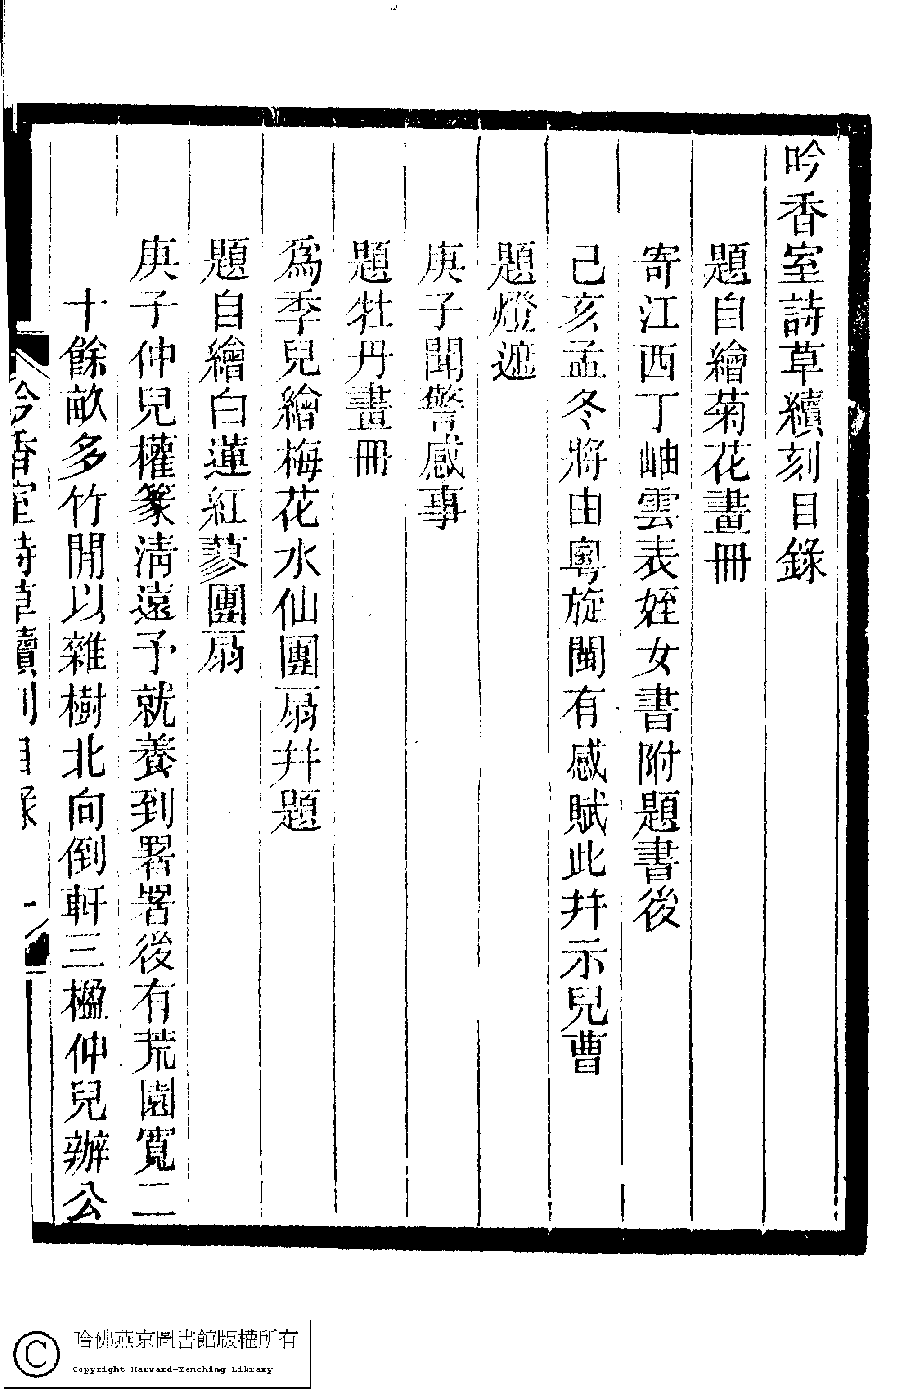 吟香室詩草續刻目錄
題自繪菊花畫冊
寄江西丁岫雲表姪女書附題書後
己亥孟冬將由粵旋閩有感賦此幷示兒曹
題燈遮
庚子聞警感事
題牡丹畫冊
爲季兒繪梅花水仙團扇幷題
題自繪白蓮紅蓼團扇
庚子仲兒權篆清遠予就養到署署後有荒園寬二
十餘畝多竹閒以雜樹北向倒軒三楹仲兒辦公
吟香室詩草續刻目錄 一
哈佛燕京圖書館版權所有
Copyright Harvard-Yenching Library